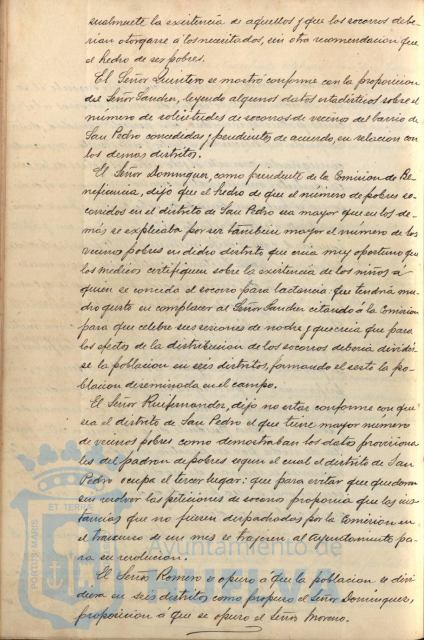 sualmente la existencia de aquellos y que los socorros debe-
rian otorgarse á los necesitados, sin otra recomendacion que
el hecho de ser pobres.
El Señor Quintero se mostró conforme con la proposicion
del Señor Sanchez, leyendo algunos datos estadisticos sobre el
número de solicitudes de socorros de vecinos del barrio de
San Pedro concedidas y pendientes de acuerdo, en relacion con
los demas distritos.
El Señor Dominguez, como presidente de la Comision de Be-
neficencia, dijo que el hecho de que el número de pobres so-
corridos en el distrito de San Pedro sea mayor que en los de-
más se explicaba por ser tambien mayor el número de los
vecinos pobres en dicho distrito que creia muy oportuno que
los medicos certifiquen sobre la existencia de los niños á
quien se conceda el socorro para lactancia: que tendria mu-
cho gusto en complacer al Señor Sanchez citando á la Comision
para que celebre sus sesiones de noche y que creia que para
los efectos de la distribucion de los socorros deberia dividir-
se la poblacion en seis distritos, formando el sesto la po-
blacion diseminada en el campo.
El Señor Ruifernandez, dijo no estar conforme con que
sea el distrito de San Pedro el que tiene mayor número
de vecinos pobres como demostraban los datos provisiona-
les del padron de pobres segun el cual el distrito de San
Pedro ocupa el tercer lugar: que para evitar que quedaran
sin resolver las peticiones de socorro proponia que las ins-
tancias que no fuesen despachadas por la Comision en
el trascurso de un mes se trajeran al Ayuntamiento pa-
ra su resolucion.
El Señor Romero se opuso á que la poblacion se divi-
diera en seis distritos como propuso el Señor Dominguez,
proposicion á que se opuso el Señor Moreno.
PORTUS MARIS
ET TERRE
Ayuntamiento de